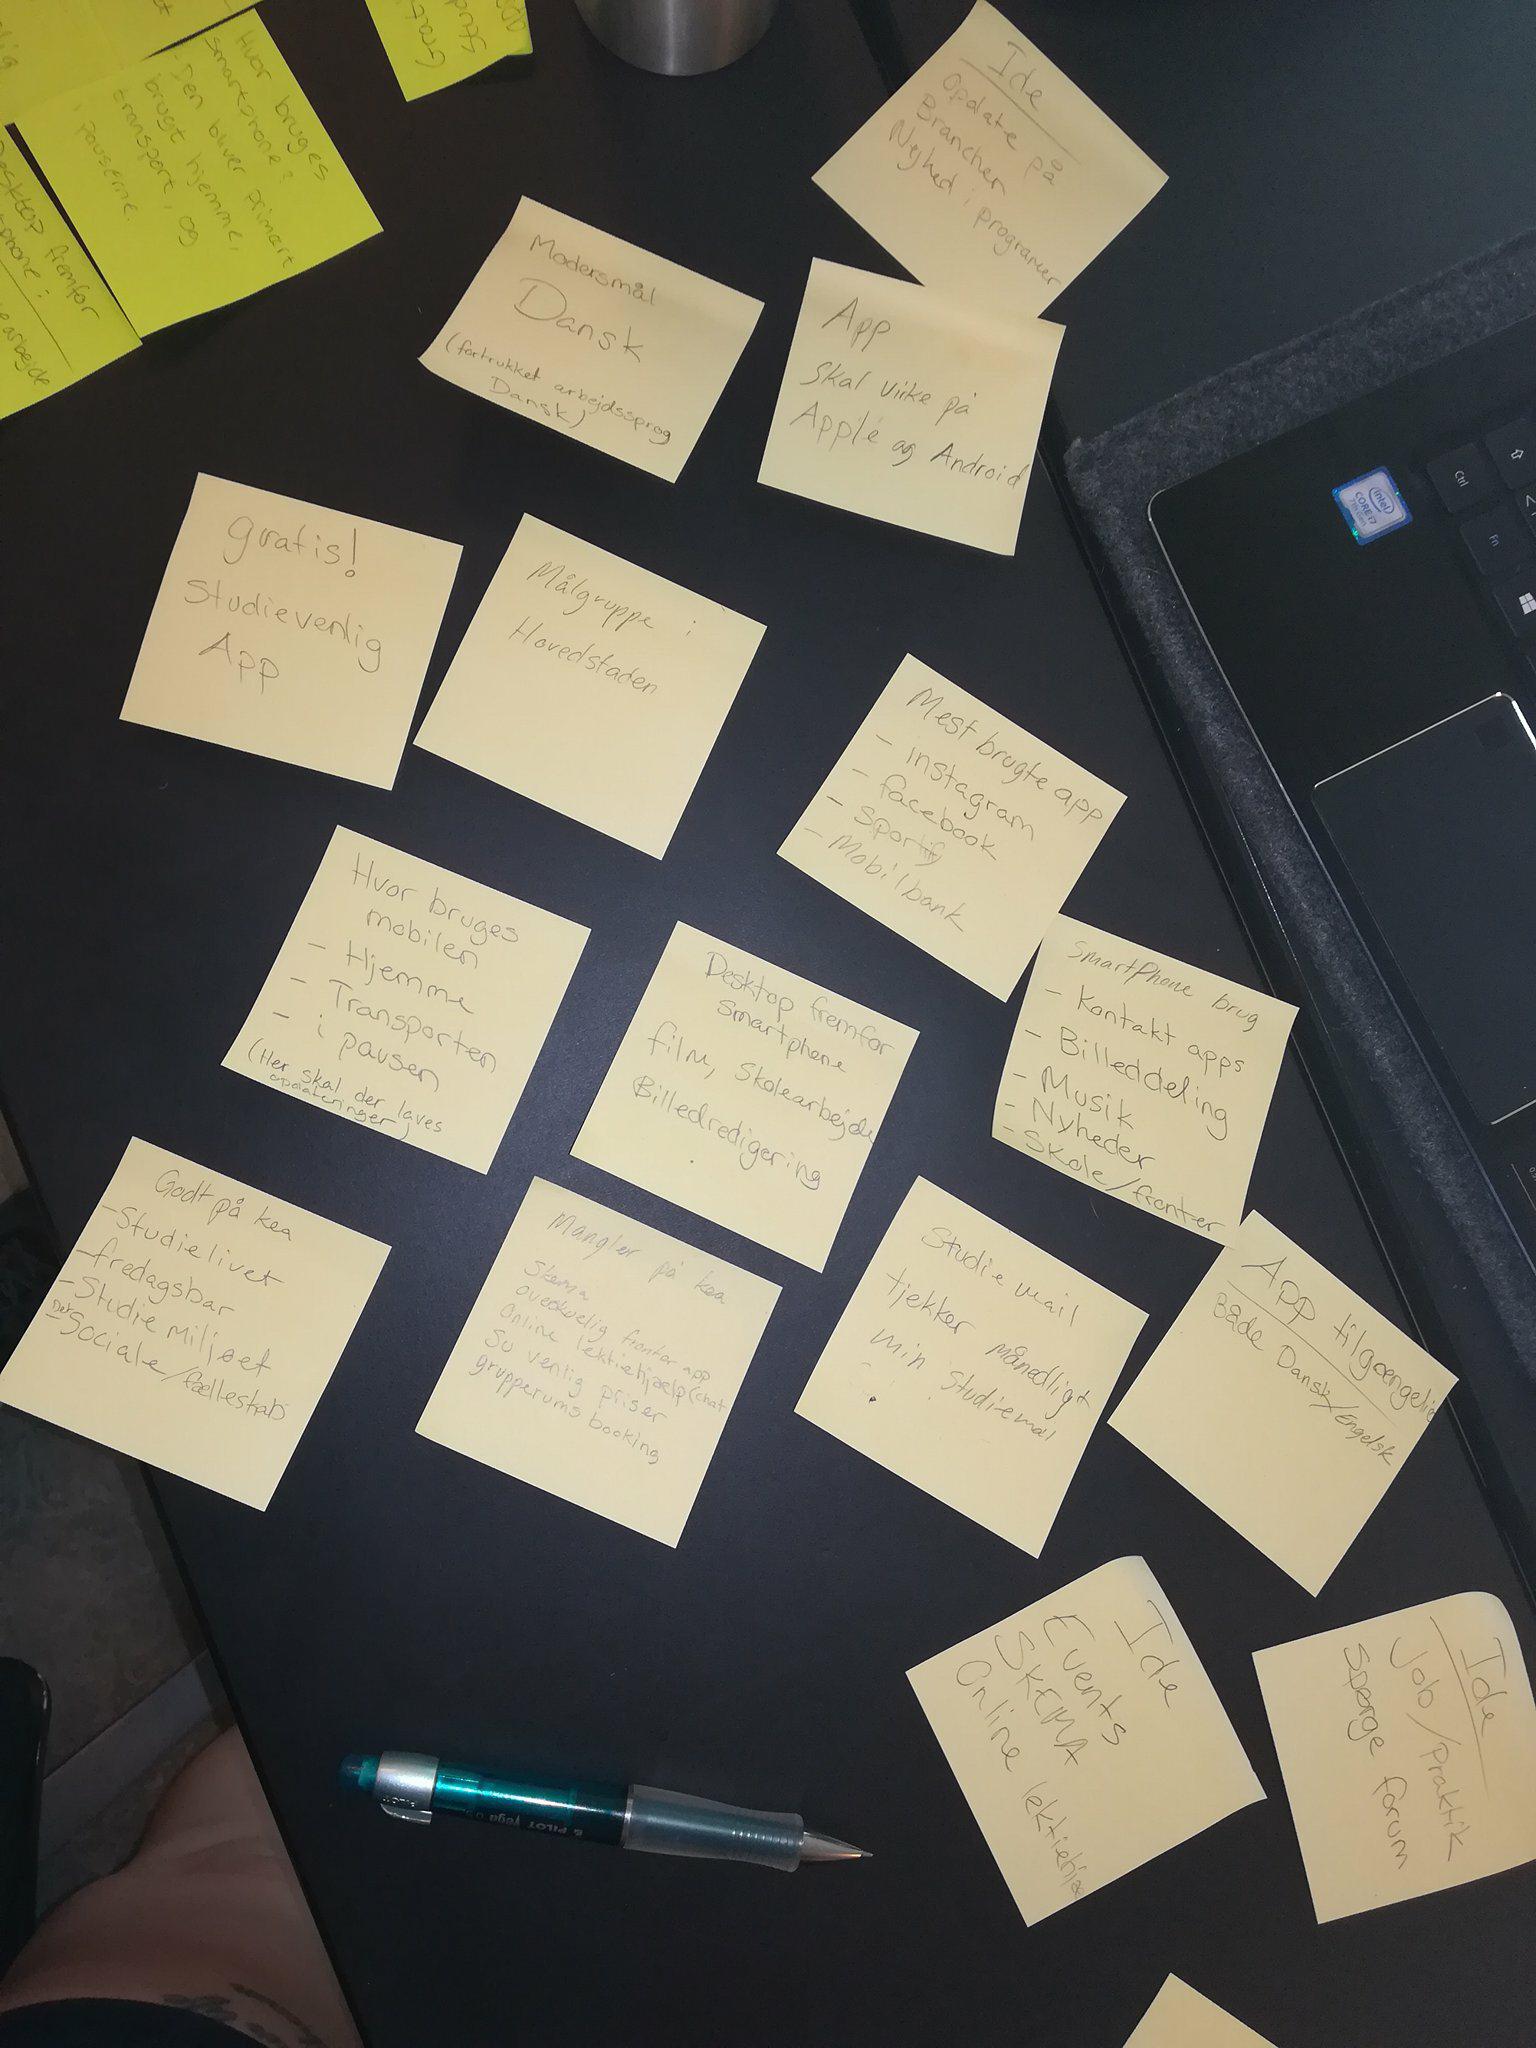 Hvor bruges
smartphone?
- Den bliver primært
brugt hjemme,
transport, og
i pauserne.
Desktop fremfor
Ide
Opdate på
Brancher
Nyhed i programer
Modersmål
Dansk
(fortrukket arbejdssprog
Dansk)
App
Skal virke på
Apple og Android
gratis!
Studievenlig
App
Målgruppe :
Hovedstaden
Mest brugte app
- instagram
- facebook
- Sportify
- Mobilbank
Hvor bruges
mobilen
- Hjemme
- Transporten
- i pausen
(Her skal der laves
opdateringer)
Desktop fremfor
smartphone
film, Skolearbejde
Billedredigering
SmartPhone brug
- Kontakt apps
- Billeddeling
- Musik
- Nyheder
- Skole/fronter
Godt på kea
- Studielivet
- fredagsbar
- Studie Miljøet
Det
- Sociale/fællesskab
Mangler på kea
Skema
fronter app
Online lektiehjælp (chat
SU venlig priser
grupperums booking
Studie mail
tjekker månedligt
min Studiemail
App tilgængelig
Både Dansk/Engelsk
Ide
Events
SKEMA
Online lektiehjæ
Ide
Job/Praktik
Spørge forum
intel
CORE i7
7th Gen
Ctrl
Fn
PILOT